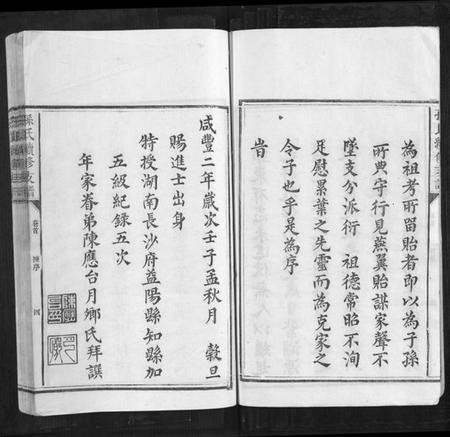 為祖考所留貽者即以為子孫
所典守行見燕翼貽謀家聲不
墜支分派衍　祖德常昭不洵
足慰累葉之先靈而為克家之
令子也乎是為序
旹
咸豐二年歲次壬子孟秋月　穀旦
賜進士出身
特授湖南長沙府益陽縣知縣加
五級紀錄五次
年家眷弟陳應台月鄉氏拜譔
孫氏續修支譜
卷首　陳序　四